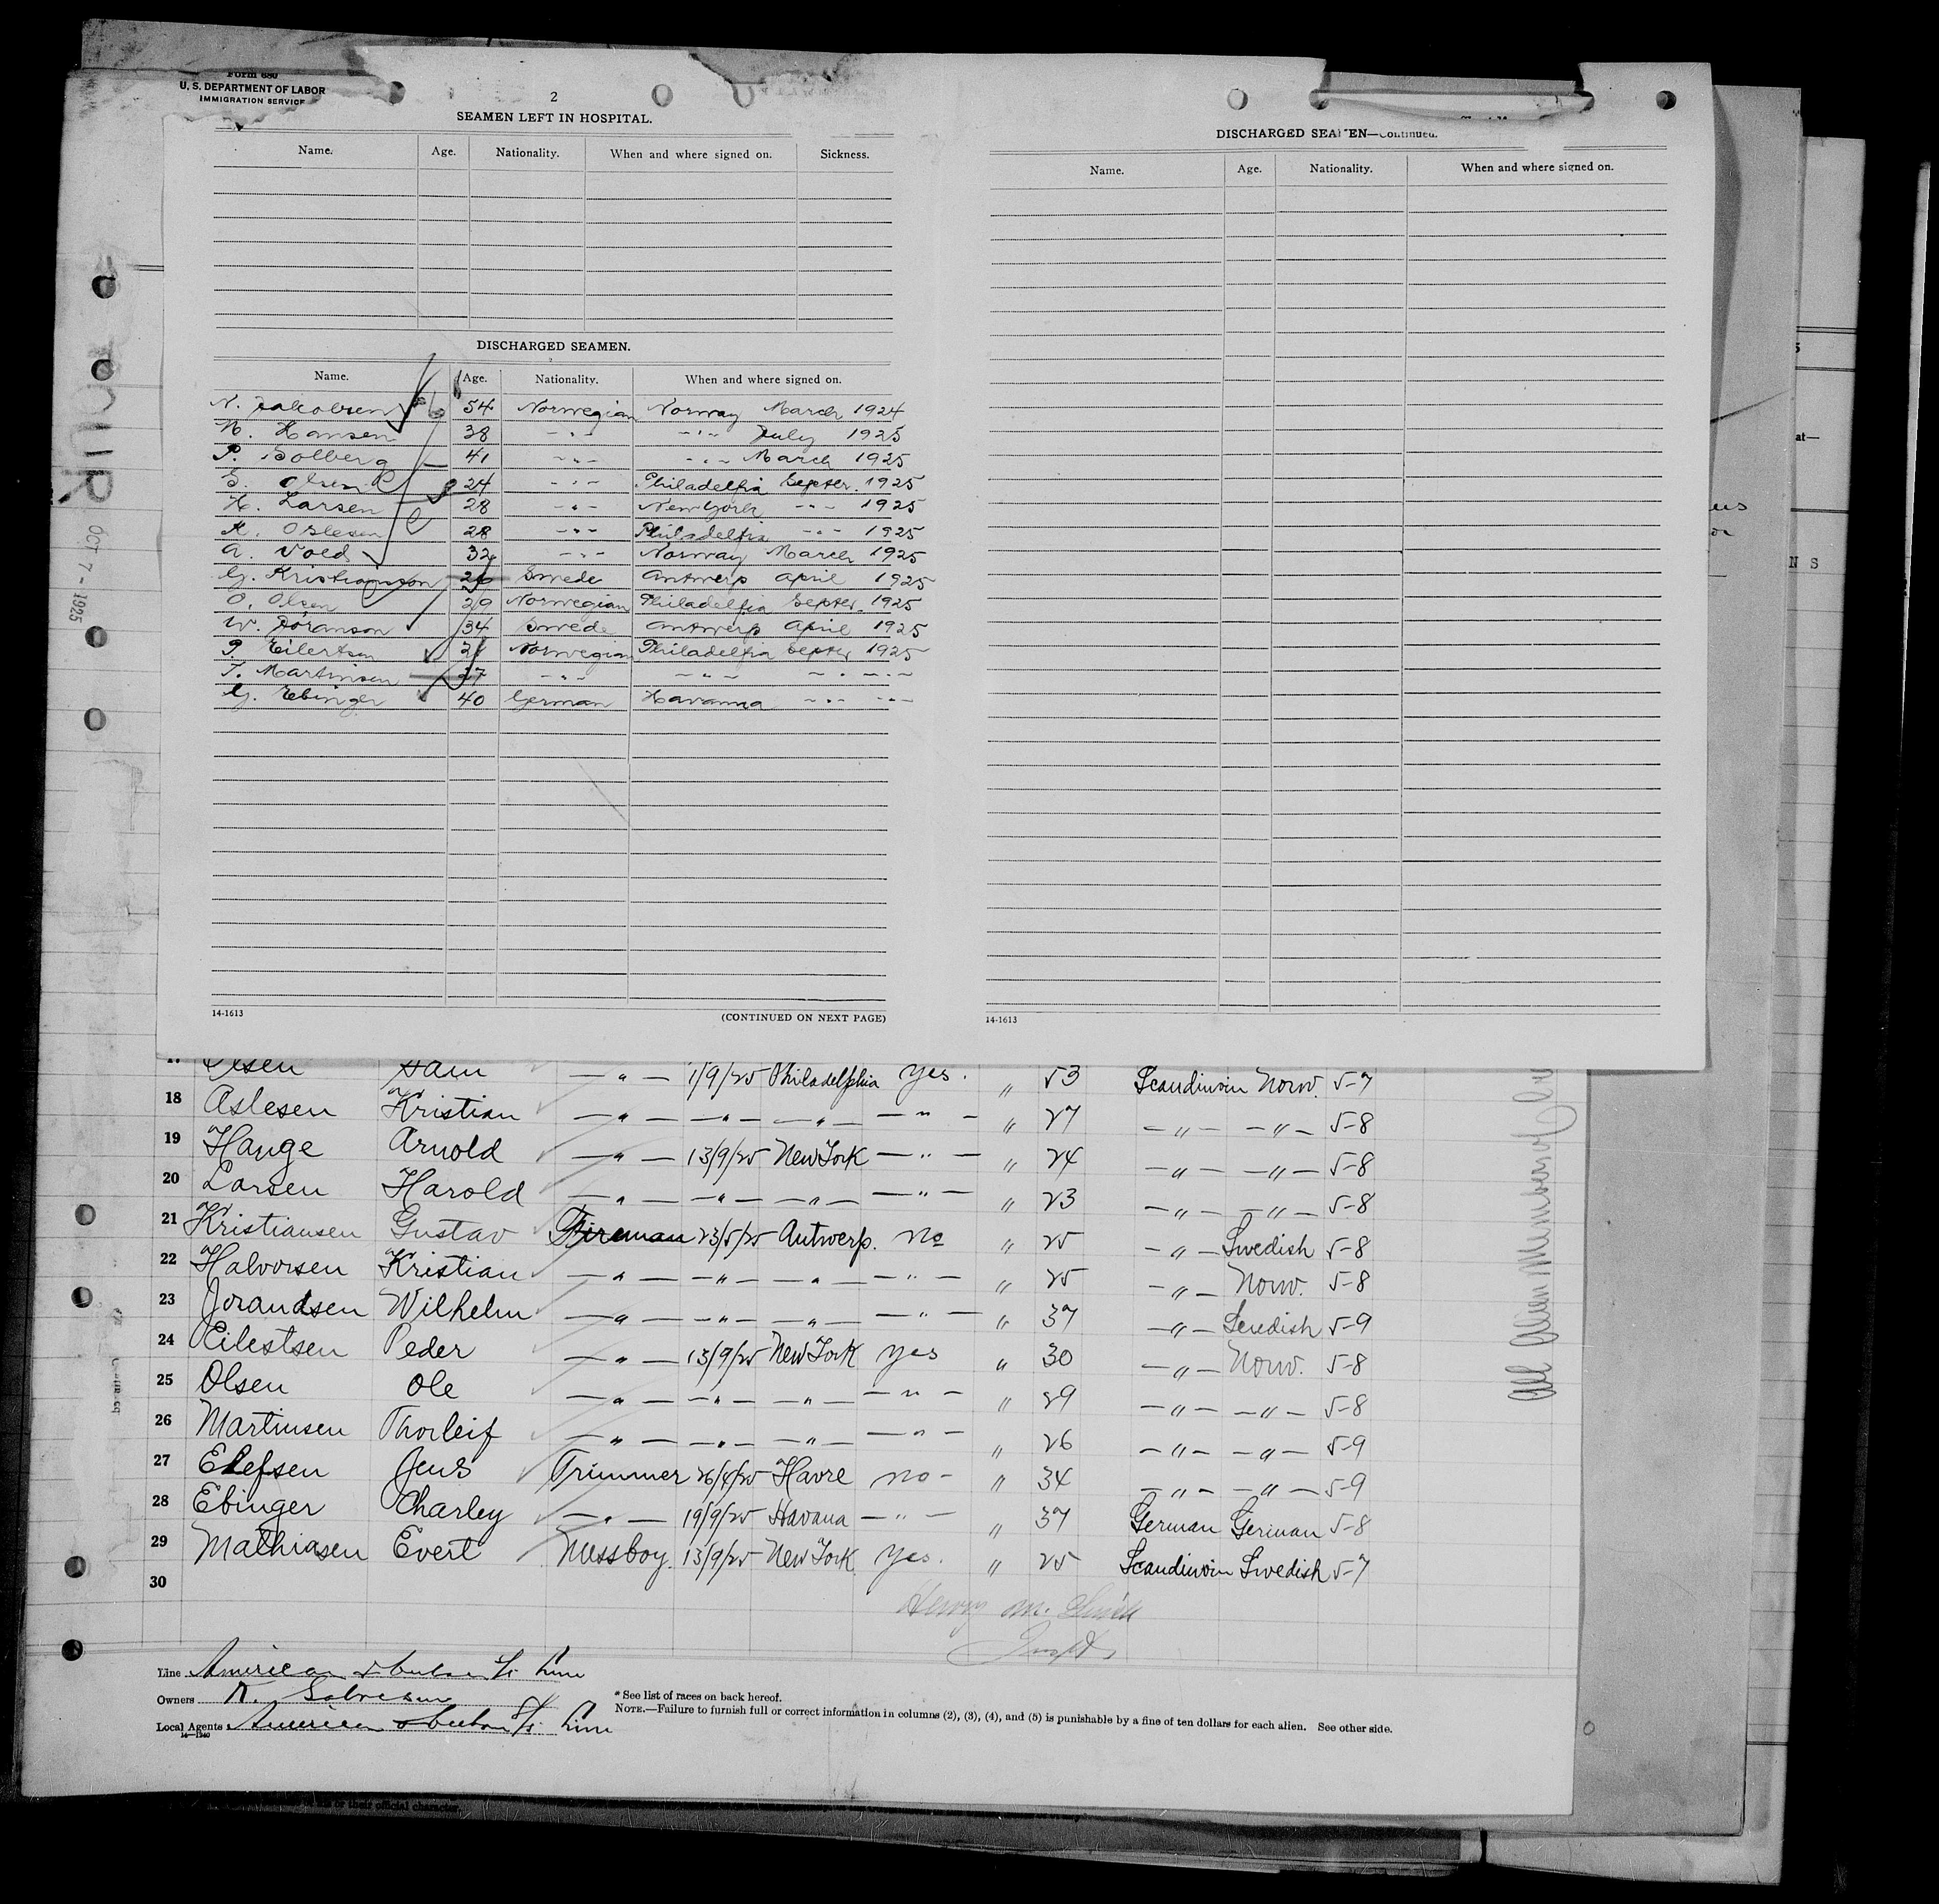 Form 680
U. S. DEPARTMENT OF LABOR
IMMIGRATION SERVICE
2
SEAMEN LEFT IN HOSPITAL.
Name. Age. Nationality. When and where signed on. Sickness.
DISCHARGED SEAMEN.
Name. Age. Nationality. When and where signed on.
N. Jakobsen 54 Norwegian Norway March 1924
N. Hansen 38 -"- -"- July 1925
P. Solberg 41 -"- -"- March 1925
S. Olsen 24 -"- Philadelfia Septer. 1925
H. Larsen 28 -"- New York -"- 1925
K. Oslesen 28 -"- Philadelfia -"- 1925
A. Vold 32 -"- Norway March 1925
G. Kristianson 26 Swede Antwerp April 1925
O. Olsen 29 Norwegian Philadelfia Septer. 1925
W. Joranson 34 Swede Antwerp April 1925
P. Eilertsen Norwegian Philadelfia Septer 1925
T. Martinsen 27 -"- -"- -"- -"-
G. Ebinger 40 German Havanna -"- -"-
14-1613 (CONTINUED ON NEXT PAGE)
DISCHARGED SEAMEN—Continued.
Name. Age. Nationality. When and where signed on.
14-1613
OCT 7 - 1925
17 Olsen Sam -"- 1/9/25 Philadelphia Yes. " 53 Scandinvin Norw. 5-7
18 Aslesen Kristian -"- -"- -"- -"- " 27 -"- -"- 5-8
19 Hauge Arnold -"- 13/9/25 New York -"- " 24 -"- -"- 5-8
20 Larsen Harold -"- -"- -"- -"- " 23 -"- -"- 5-8
21 Kristiansen Gustav Fireman 23/5/25 Antwerp. no " 25 -"- Swedish 5-8
22 Halvorsen Kristian -"- -"- -"- -"- " 25 -"- Norw. 5-8
23 Jorandsen Wilhelm -"- -"- -"- -"- " 37 -"- Swedish 5-9
24 Eilestsen Peder -"- 13/9/25 New York yes " 30 -"- Norw. 5-8
25 Olsen Ole -"- -"- -"- -"- " 29 -"- -"- 5-8
26 Martinsen Thorleif -"- -"- -"- -"- " 26 -"- -"- 5-9
27 Elefsen Jens Trimmer 26/4/25 Havre no - " 34 -"- -"- 5-9
28 Ebinger Charley -"- 19/9/25 Havana -"- " 37 German German 5-8
29 Mathiasen Evert Messboy. 13/9/25 New York Yes. " 25 Scandinvin Swedish 5-7
30
Henry M.
All Alien Members of
Line American & Cuban S/S Line
Owners K.
Local Agents American & Cuban S/S Line
14-1240
* See list of races on back hereof.
NOTE.—Failure to furnish full or correct information in columns (2), (3), (4), and (5) is punishable by a fine of ten dollars for each alien. See other side.
or their official character.